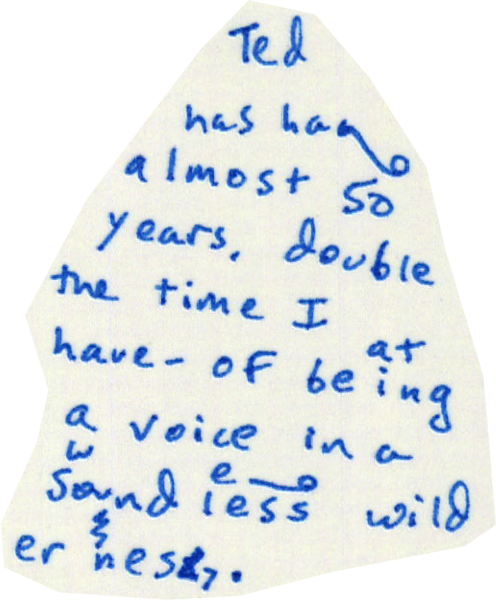 Ted
has had
almost 50
years, double
the time I
have- of being at
a voice in a
soundless wild
erness.